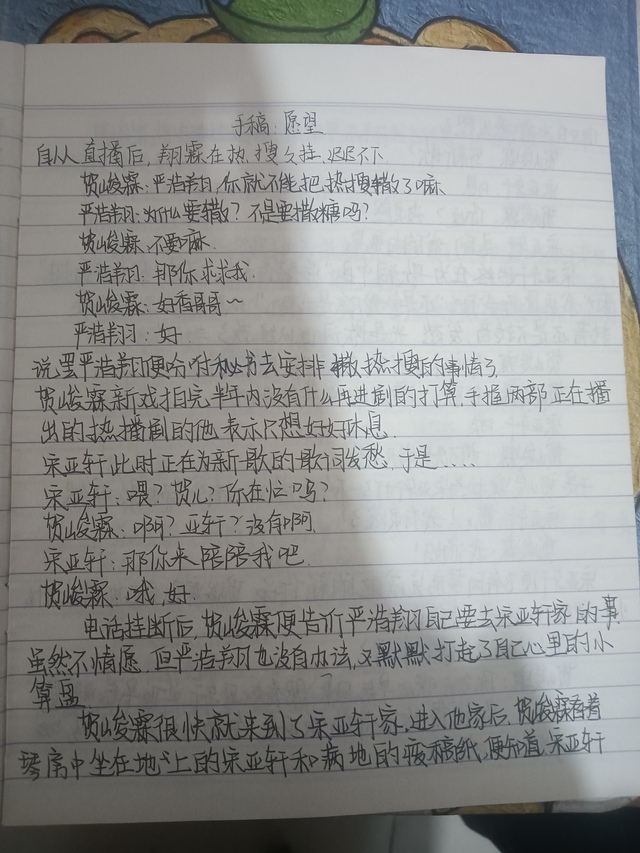 手稿:愿望
自从直播后,翔霖在热搜久挂,迟迟不下
贺峻霖:严浩翔,你就不能把热搜撤了嘛
严浩翔:为什么要撤?不是要撒糖吗?
贺峻霖:不要嘛.
严浩翔:那你求求我.
贺峻霖:好香哥哥~
严浩翔:好
说罢严浩翔便吩咐秘书去安排撤热搜的事情了
贺峻霖新戏拍完半年内没有什么再进剧的打算,手握两部正在播
出的热播剧的他,表示只想好好休息.
宋亚轩此时正在为新歌的歌词发愁,于是....
宋亚轩:喂?贺儿?你在忙吗?
贺峻霖:啊?亚轩?没有啊.
宋亚轩:那你来陪陪我吧.
贺峻霖:哦,好.
电话挂断后,贺峻霖便告诉严浩翔自己要去宋亚轩家的事,
虽然不情愿,但严浩翔也没有办法,又默默打起了自己心里的小
算盘
贺峻霖很快就来到了宋亚轩家,进入他家后,贺峻霖看着
琴房中坐在地上的宋亚轩和满地的废稿纸,便知道,宋亚轩